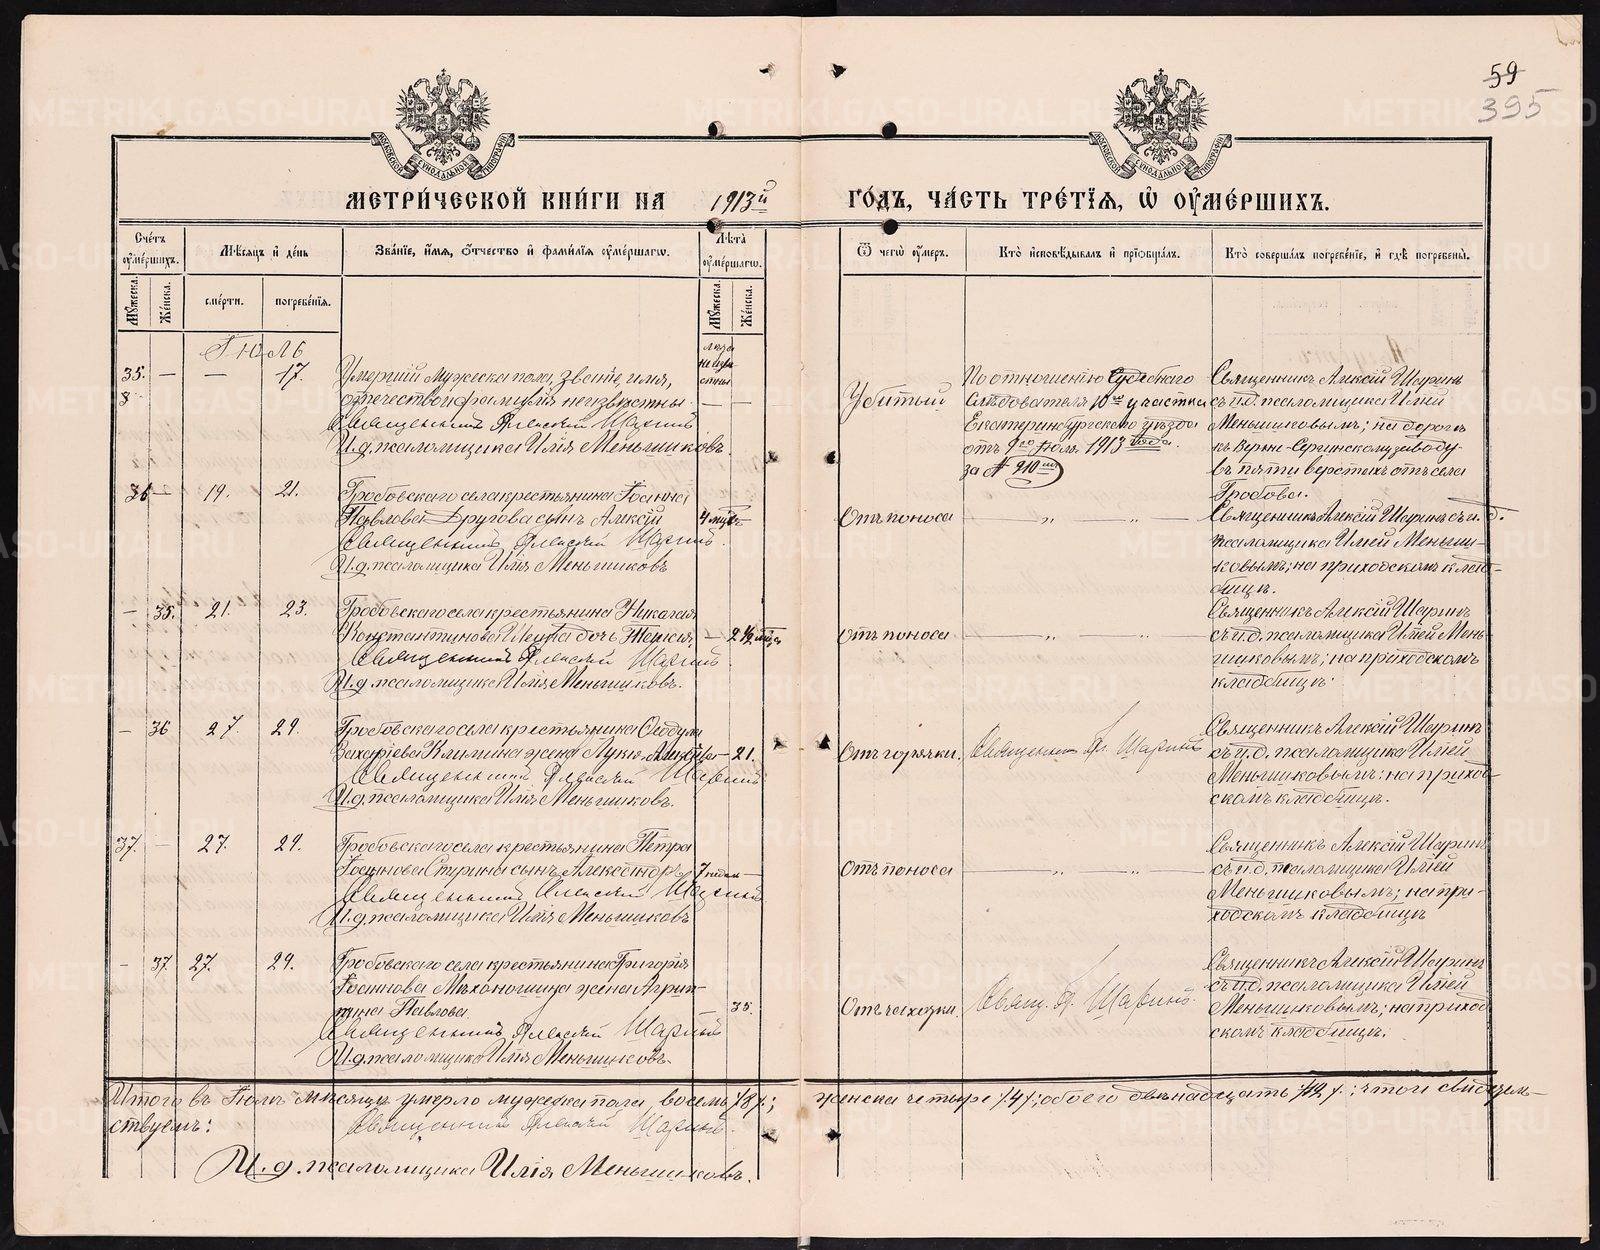 59
395
МЕТРИ́ЧЕСКОЙ КНИ́ГИ НА 1913й ГО́ДЪ, ЧА́СТЬ ТРЕ́ТЇѦ, Ѡ҆ ОУ҆МЕ́РШИХЪ.
Сче́тъ оу҆ме́ршихъ.
Мꙋ́жеска.
Же́нска.
Мѣ́сяцъ и҆ де́нь
сме́рти.
погребе́нїя.
Зва́нїе, и҆́мя, ѻ҆́тчество и҆ фами́лїя оу҆ме́ршагѡ.
Лѣ́та оу҆ме́ршагѡ.
Мꙋ́жеска.
Же́нска.
Ѿ чегѡ̀ оу҆́меръ.
Кто̀ и҆сповѣ́дывалъ и҆ прїѡбща́лъ.
Кто̀ соверша́лъ погребе́нїе, и҆ гдѣ̀ погребены̀.
Іюль
35. — — 17.
Умершій мужеска пола, званіе, имя,
отчество и фамилія неизвѣстны.
Священникъ Алексій Шаринъ
И.д. псаломщика Илія Меньшиковъ.
лѣта неизвѣстны
Убитый
По отношенію Судебнаго
Слѣдователя 10го участка
Екатеринбургскаго уѣзда
отъ 9го Іюля 1913 года.
за № 910мъ
Священникъ Алексій Шаринъ
съ и.д. псаломщика Иліей
Меньшиковымъ; на дорогѣ
къ Верхне-Сергинскому заводу
въ пяти верстахъ отъ села
Гробова.
36 — 19. 21.
Гробовскаго села крестьянина Іоанна
Павлова Другова сынъ Алексій
Священникъ Алексій Шаринъ.
И.д. псаломщика Илія Меньшиковъ
4 мѣс.
Отъ поноса
— „ — „ —
Священникъ Алексій Шаринъ съ и.д.
псаломщика Иліей Меньши-
ковымъ; на приходскомъ клад-
бищѣ.
— 35. 21. 23.
Гробовскаго села крестьянина Николая
Константинова дочь Таисія,
Священникъ Алексій Шаринъ
И.д. псаломщика Илія Меньшиковъ.
— 2½ мѣс.
Отъ поноса
— „ — „ —
Священникъ Алексій Шаринъ
съ и.д. псаломщика Иліей Мень-
шиковымъ; на приходскомъ
кладбищѣ.
— 36 27. 29.
Гробовскаго села крестьянина Ѳеодула
Захаріева Климина жена
Священникъ Алексій Шаринъ
И.д. псаломщика Илія Меньшиковъ.
— 21.
Отъ горячки.
Священникъ Ал. Шаринъ
Священникъ Алексій Шаринъ
съ и.д. псаломщика Иліей
Меньшиковымъ: на приход-
скомъ кладбищѣ.
37. — 27. 29.
Гробовскаго села крестьянина Петра
Іоаннова сынъ Александръ
Священникъ Алексій Шаринъ
И.д. псаломщика Илія Меньшиковъ
7 недѣль —
Отъ поноса
— „ — „ —
Священникъ Алексій Шаринъ
съ и.д. псаломщика Иліей
Меньшиковымъ; на при-
ходскомъ кладбищѣ
— 37 27. 29.
Гробовскаго села крестьянина Григорія
Іоаннова Мѣхоношина жена Агрип-
пина Павлова.
Священникъ Алексій Шаринъ
И.д. псаломщика Илія Меньшиковъ.
35.
Отъ чахотки.
Свящ. А. Шаринъ.
Священникъ Алексій Шаринъ
съ и.д. псаломщика Иліей
Меньшиковымъ; на приход-
скомъ кладбищѣ.
Итого въ Іюлѣ мѣсяцѣ умерло мужеска пола восемь /8/; женска четыре /4/; обоего двѣнадцать /12/; что и свидѣтель-
ствуемъ: Священникъ Алексій Шаринъ.
И.д. псаломщика Илія Меньшиковъ.